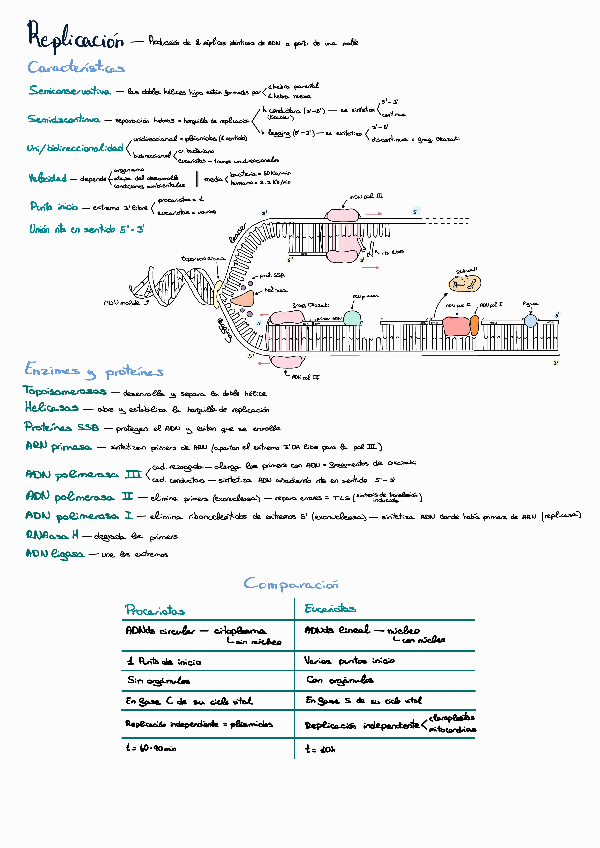 Replicación — Producción de 2 réplicas idénticas de ADN a partir de una molde
Características
Semiconservativa — las dobles hélices hijas están formadas por 1 hebra parental
1 hebra nueva
Semidiscontinua — separación hebras = horquilla de replicación
h. conductora (3'-5') — se sintetiza 5'-3'
continua
(leader)
h. lagging (5'-3') — se sintetiza
discontinua = frag. Okazaki
Uni/bidireccionalidad
unidireccional = plásmidos (1 sentido)
bidireccional
c. bacteriano
eucariotas
Velocidad — depende
organismo
etapa del desarrollo
condiciones ambientales
media
bacterias = 60 Kb/min
humano = 2-3 Kb/min
Punto inicio — extremo 3' libre
procariotas = 1
eucariotas = varios
Unión nts en sentido 5'-3'
ADN pol III
3'
5'
leader
Topoisomerasa
prot. SSB
helicasa
ADN molde
lagging
Frag Okazaki
ARN primasa
ADN pol III
RNAasa H
ADN pol II
ADN pol I
ligasa
5'
3'
Enzimas y proteínas
Topoisomerasas — desenrolla y separa la doble hélice
Helicasas — abre y estabiliza la horquilla de replicación
Proteínas SSB — protegen el ADN y evitan que se enrolle
ARN primasa — sintetizan primers de ARN (aportan el extremo 3'OH libre para la pol III)
ADN polimerasa III
cad. rezagada — alarga los primers con ADN = fragmentos de Okazaki
cad. conductora — sintetiza ADN añadiendo nts en sentido 5'-3'
ADN polimerasa II — elimina primers (exonucleasa) — repara errores = TLS (síntesis de translesión inducida)
ADN polimerasa I — elimina ribonucleótidos de extremos 5' (exonucleasa) — sintetiza ADN donde había primers de ARN (replicasa)
RNAasa H — degrada los primers
ADN ligasa — une los extremos
Comparación
Procariotas
Eucariotas
ADNds circular — citoplasma
sin núcleo
ADNds lineal — núcleo
con núcleo
1 Punto de inicio
Varios puntos inicio
Sin orgánulos
Con orgánulos
En fase C de su ciclo vital
En fase S de su ciclo vital
Replicación independiente = plásmidos
Replicación independiente
cloroplastos
mitocondrias
t = 60-90 min
t = 20h